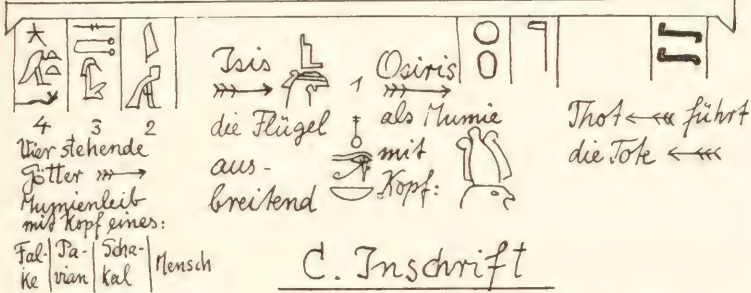 4 3 2
Vier stehende
Götter
Mumienleib
mit Kopf eines:
Fal-
ke
Pa-
vian
Scha-
kal
Mensch
Isis
die Flügel
aus-
breitend
1
Osiris
als Mumie
mit
Kopf:
Thot führt
die Tote
C. Inschrift